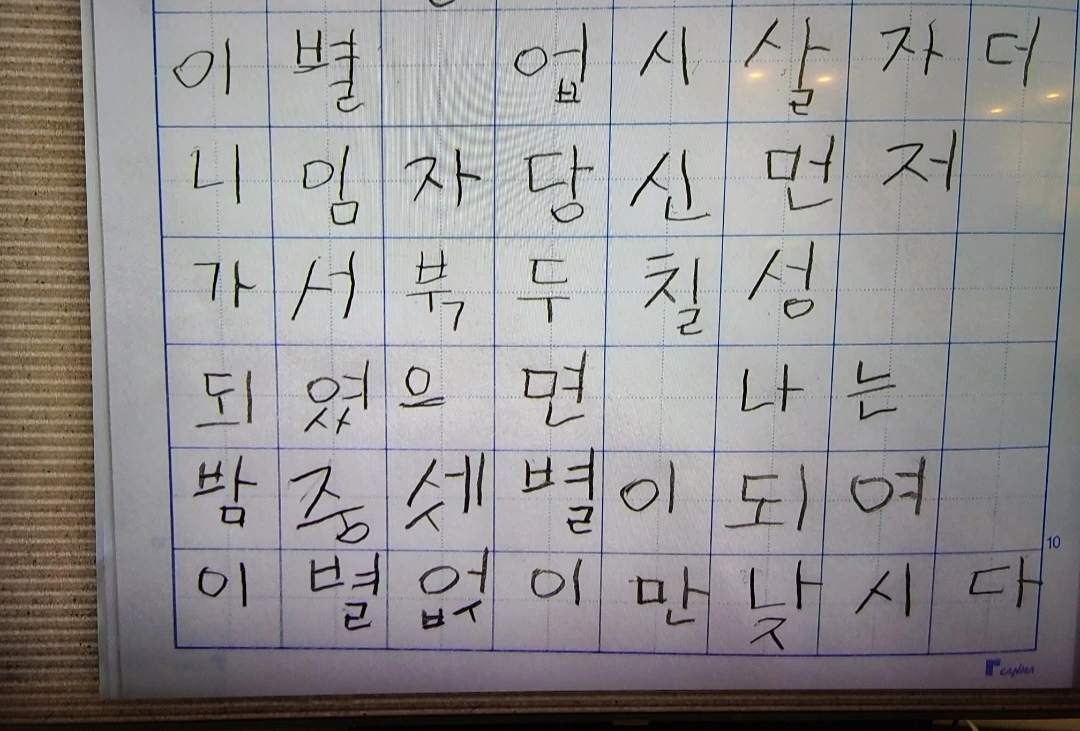 이별 업시살자더
니임자당신먼저
가서북두칠성
되였으면 나는
밤중세별이되여
이별없이만낫시다
10
CANMA